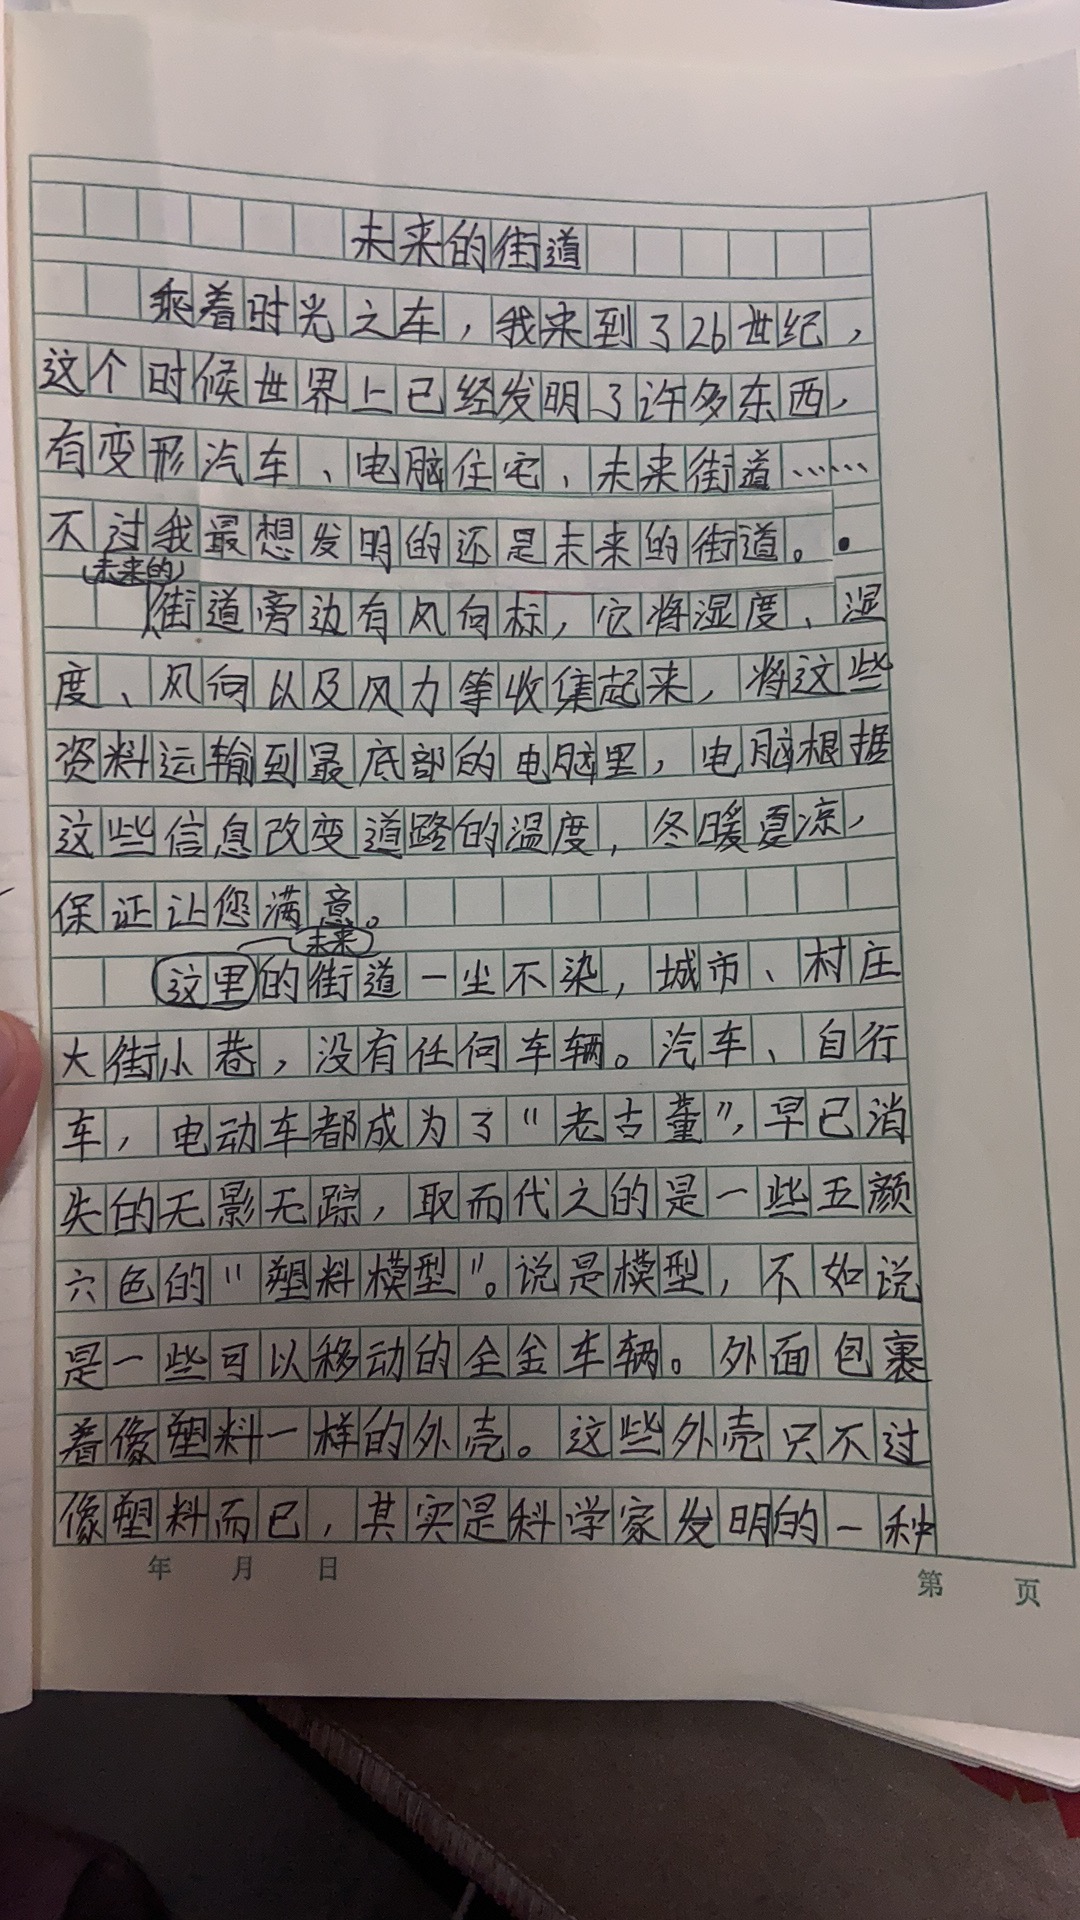 未来的街道
乘着时光之车，我来到了26世纪，
这个时候世界上已经发明了许多东西，
有变形汽车、电脑住宅、未来街道……
不过我最想发明的还是未来的街道。
（未来的）
街道旁边有风向标，它将湿度、湿
度、风向以及风力等收集起来，将这些
资料运输到最底部的电脑里，电脑根据
这些信息改变道路的温度，冬暖夏凉，
保证让您满意。
未来
这里的街道一尘不染，城市、村庄
大街小巷，没有任何车辆。汽车、自行
车，电动车都成为了“老古董”，早已消
失的无影无踪，取而代之的是一些五颜
六色的“塑料模型”。说是模型，不如说
是一些可以移动的全金车辆。外面包裹
着像塑料一样的外壳。这些外壳只不过
像塑料而已，其实是科学家发明的一种
年 月 日
第 页